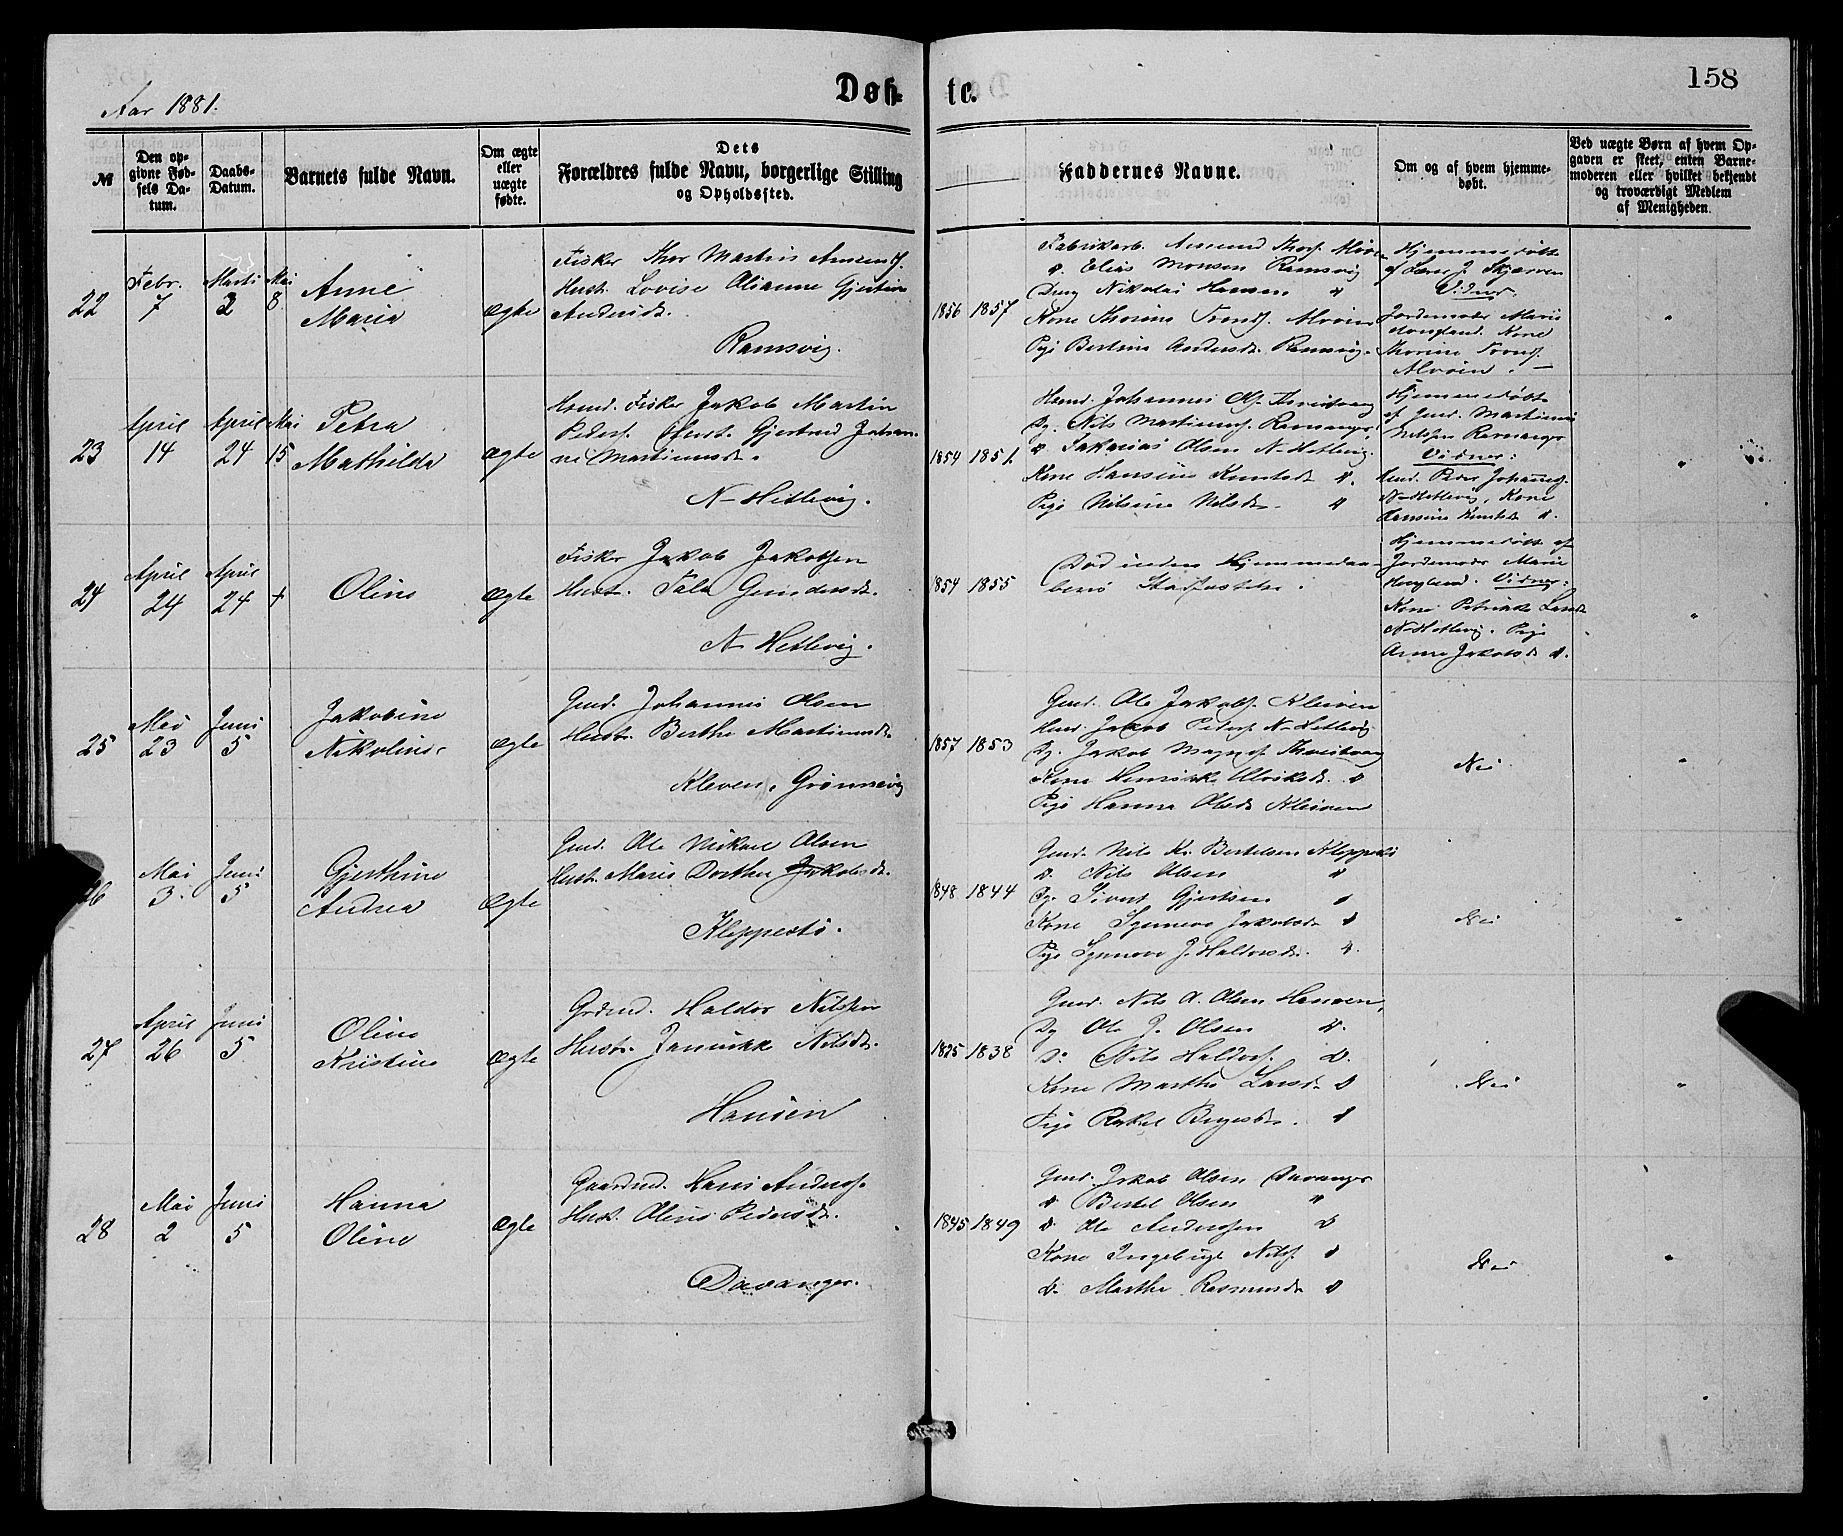 Aar 1881.
Døb-
te.
158
№
Den op-
givne Fød-
sels Da-
tum.
Daabs-
Datum.
Barnets fulde Navn.
Om ægte
eller
uægte
fødte.
Dets
Forældres fulde Navn, borgerlige Stilling
og Opholdssted.
Faddernes Navne.
Om og af hvem hjemme-
døbt.
Ved uægte Børn af hvem Op-
gaven er skeet, enten Barne-
moderen eller hvilket bekjendt
og troværdigt Medlem
af Menigheden.
22
Febr.
7
Marts
2
Mai
8
Anne
Maria
ægte
Fisker Thor Martin
Hust. Lovise Olianne
Andersdt.
Ramsvig.
1856 1857
Fabrikarb.
d. Elias Monsen Ramsvig
Dreng Nikolai Hansen d
Kone Thorine
Pige Bertine Andersdt. Ramsvig.
Hjemmedøbt
af Lærer J. Skjerven
Vidner:
Jordemoder Marie
Kone
Thorine
Alvøen.
23
April
14
April
24
Mai
15
Petra
Mathilde
ægte
Huusmd. Fisker Jakob Martin
Peders. Hust. Gjertrud Johan-
ne Martinusdt.
N-Hetlevig.
1854 1851
Huusmd. Johannes Ols.
Dg. Nils Martinus. Ramanger
d Sakarias Olsen N-Hetlevig
Kone Hansine Knutsdt d.
Pige Nilsine Nilsdt. d
Hjemmedøbt
af Gmd. Martinus
Nilssen Ramanger
Vidner:
Huusmd. Peder Johannes.
N-Hetlevig, Kone
Hansine Knutsdt d.
24
April
24
April
24
+
Oline
ægte
Fisker Jakob Jakobsen
Hust.
N-Hetlevig.
1854 1855
Død inden Hjemmedaa-
bens Stadfæstelse.
Hjemmedøbt af
Jordemoder Marie
Haugland. Vidner:
Kone Petrikke Larsdt
N-Hetlevig. Pige
Anna Jakobsdt d.
25
Mai
23
Juni
5
Jakobine
Nikoline
ægte
Gmd. Johannes Olsen
Hust. Berthe Martinusdt.
Kleven, Grønnevig
1857 1853
Gmd. Ole Jakobs. Kleiven
Huusmd. Jakob Peders. N-Hetlevig
Dg. Jakob
Kone Henrikke d
Pige Hanna Olsdt Kleiven
Nei
26
Mai
3
Juni
5
Gjerthine
Andrea
ægte
Gmd. Ole Mikael Olsen
Hust. Maris Dorthea Jakobsdt.
Kleppestø.
1848 1844
Gmd. Nils Kr. Bertelsen Kleppestø
d. Nils Olsen d
Dg. Sivert Gjertsen d
Kone Synneve Jakobsdt d
Pige Synneve J. Haldorsdt. d.
Nei
27
April
26
Juni
5
Oline
Kristine
ægte
Grdmd. Haldor Nilssen
Hust. Jannikke Nilsdt.
Hansen
1825 1838
Gmd. Nils A. Olsen Hanøen,
Dg Ole J. Olsen d.
d. Nils Haldors. d.
Kone Marthe Larsdt d
Pige Rakel d
Nei
28
Mai
2
Juni
5
Hanna
Oline
ægte
Gaardmd. Hans Anders.
Hust. Oline Pedersdt.
Davanger.
1845 1849
Gmd. Jakob Olsen Davanger
d. Bertel Olsen "
d. Ole Anderssen d
Kone Ingeborg Nils. d
d. Marthe Rasmusdt d
Nei